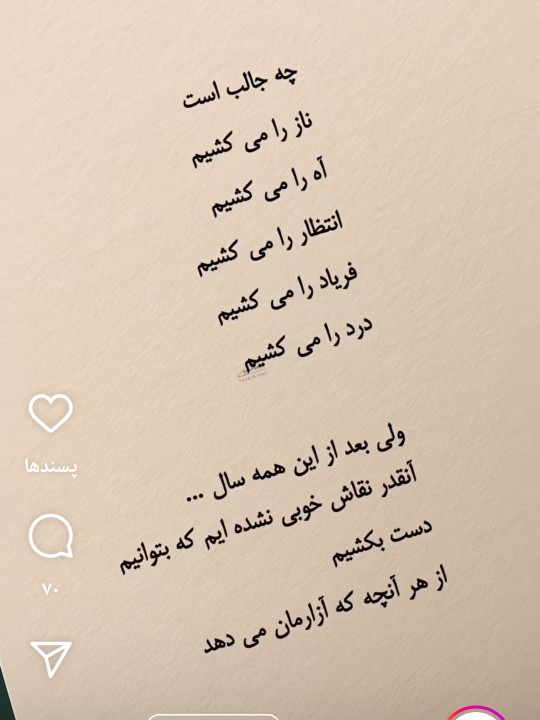 چه جالب است
ناز را می کشیم
آه را می کشیم
انتظار را می کشیم
فریاد را می کشیم
درد را می کشیم
ولی بعد از این همه سال ...
آنقدر نقاش خوبی نشده ایم که بتوانیم
دست بکشیم
از هر آنچه که آزارمان می دهد
پسندها
۷۰